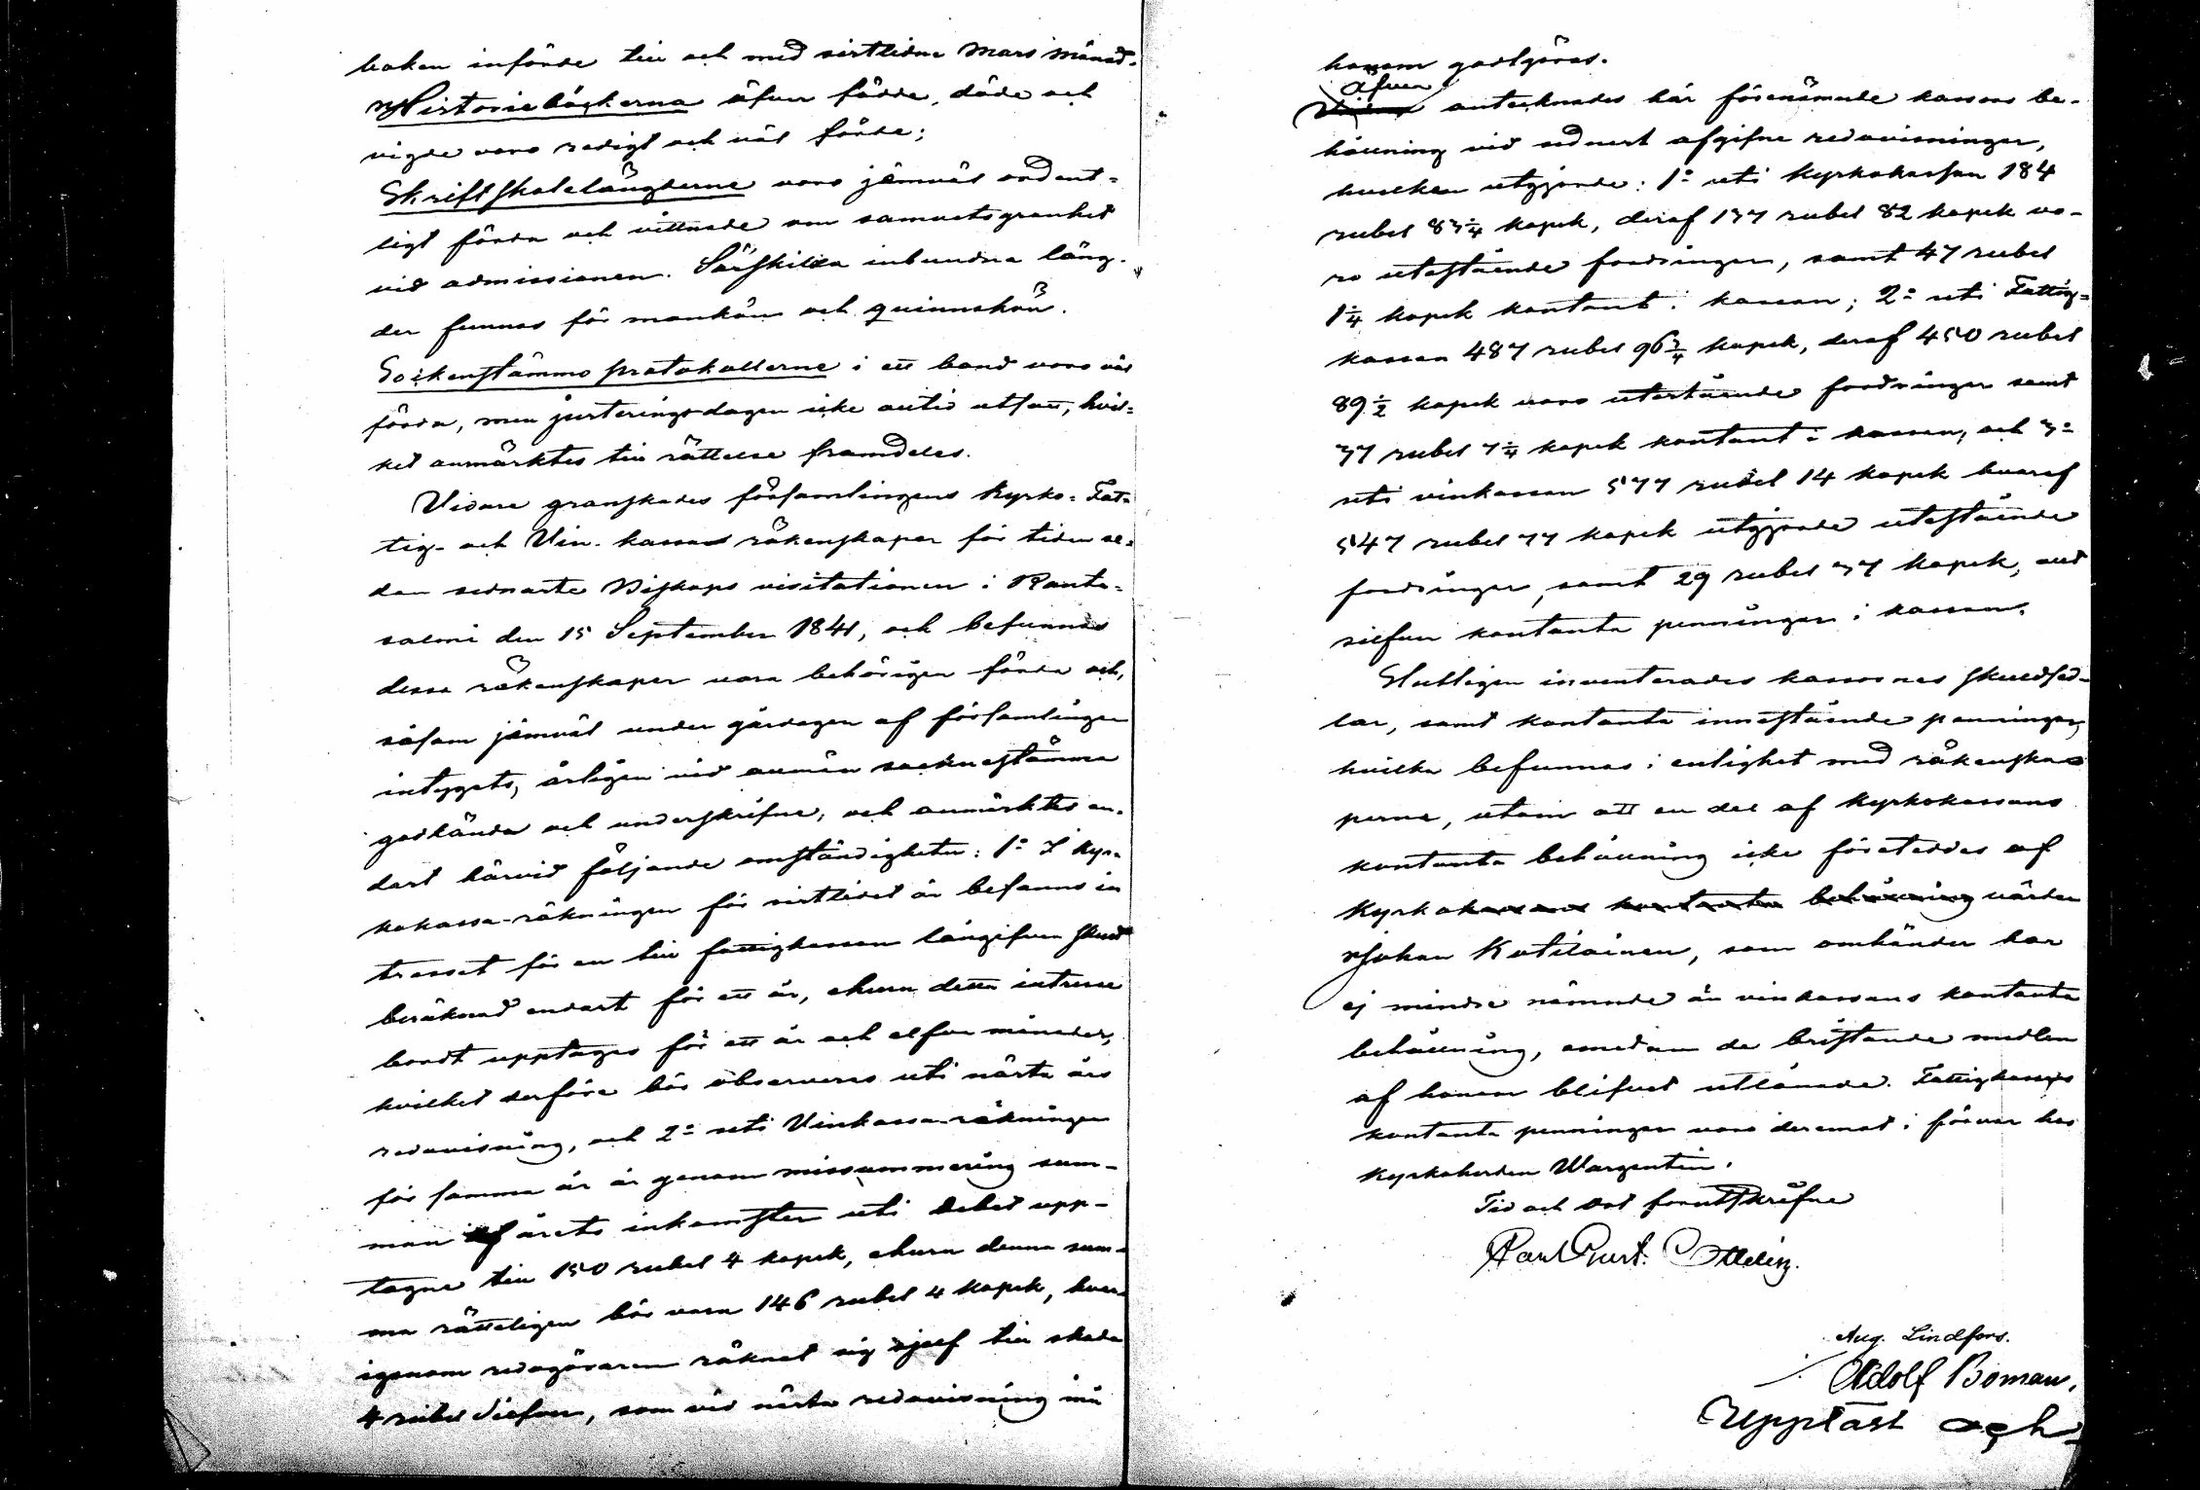 boken införde till och med sistlidne Mars månad.
Historieböckerna öfver födde, döde och
vigde voro redigt och väl förde;
Skriftskolelängderne voro jemväl ordent-
ligt förda och vittnade om samvetsgranhet
vid admissionen. Särskilda inbundna läng-
der funnos för mankön och qvinnokön.
Sockenstämmo protokollerne i ett band voro väl
förda, men justeringsdagen icke alltid utsatt, hvil-
ket anmärktes till rättelse framdeles.
Vidare granskades församlingens Kyrko- Fat-
tig- och Vin- kassas räkenskaper för tiden se-
dan sednaste Biskops visitationen i Ranta-
salmi den 15 September 1841, och befunnos
dessa räkenskaper vara behörigen förda och,
såsom jemväl under gårdagen af församlingen
intygats, årligen vid allmän sockenstämma
godkända och underskrifne; och anmärktes en-
dast härvid följande omständigheter: 1:o I kyr-
kokassa-räkningen för sistlidet år befanns in
tresset för en till fattigkassan långifven skuld
beräknad endast för ett år, ehuru detta intresse
bordt upptagas för ett år och elfva månader,
hvilket derföre bör observeras uti nästa års
redovisning, och 2:o uti Vinkassa-räkningen
för samma år är genom missummering sum-
man af årets inkomster uti Debet upp-
tagne till 150 rubel 4 kopek, ehuru denna sum-
ma rätteligen bör vara 146 rubel 4 kopek, hvar-
igenom redogöraren räknat sig sjelf till skada
4 rubel Silfver, som vid nästa redovisning må
honom godtgöras.
äfven
antecknades här förenämnde kassors be-
hållning vid sednast afgifne redovisningar,
hvilken utgjorde: 1:o uti Kyrkokassan 184
rubel 83 1/4 kopek, deraf 137 rubel 82 kopek vo-
ro utestående fordringar, samt 47 rubel
1 1/4 kopek kontant i kassan; 2:o uti Fattig-
kassan 487 rubel 96 3/4 kopek, deraf 450 rubel
89 1/2 kopek voro utestående fordringar samt
37 rubel 7 1/4 kopek kontant i kassan; och 3:o
uti vinkassan 577 rubel 14 kopek hvaraf
547 rubel 77 kopek utgjorde utestående
fordringar, samt 29 rubel 37 kopek, allt
silfver kontanta penningar i kassan.
Slutligen inventerades kassornas skuldsed-
lar, samt kontanta innestående penningar,
hvilka befunnos i enlighet med räkenska-
perna, utom att en del af Kyrkokassans
kontanta behållning icke företeddes af
Kyrkokassans kontanta behållning värden
Johan Kotilainen, som omhänder har
ej mindre nämnde än vinkassans kontanta
behållning, emedan de bristande medlen
af honom blifvit utlånade. Fattigkassans
kontanta penningar voro deremot i förvar hos
Kyrkoherden Wargentin.
Tid och Ort förutskrefne
Carl Gust. Ottelin.
Aug. Lindfors.
Adolf Boman.
Uppläst och